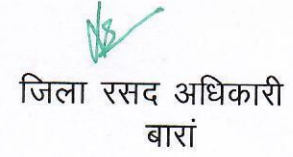 जिला रसद अधिकारी
बारां